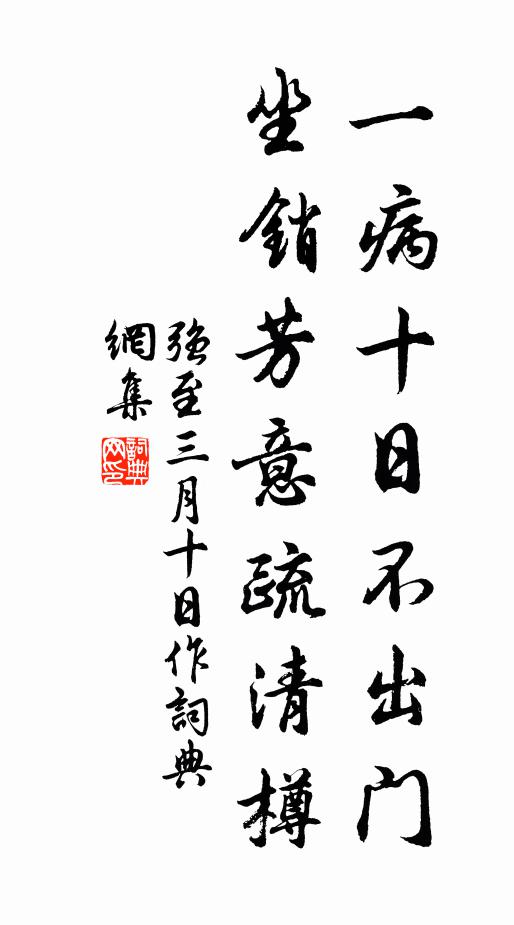 一病十日不出門
坐銷芳意疏清樽
強至三月十日作詞典
網集
詞典
网印